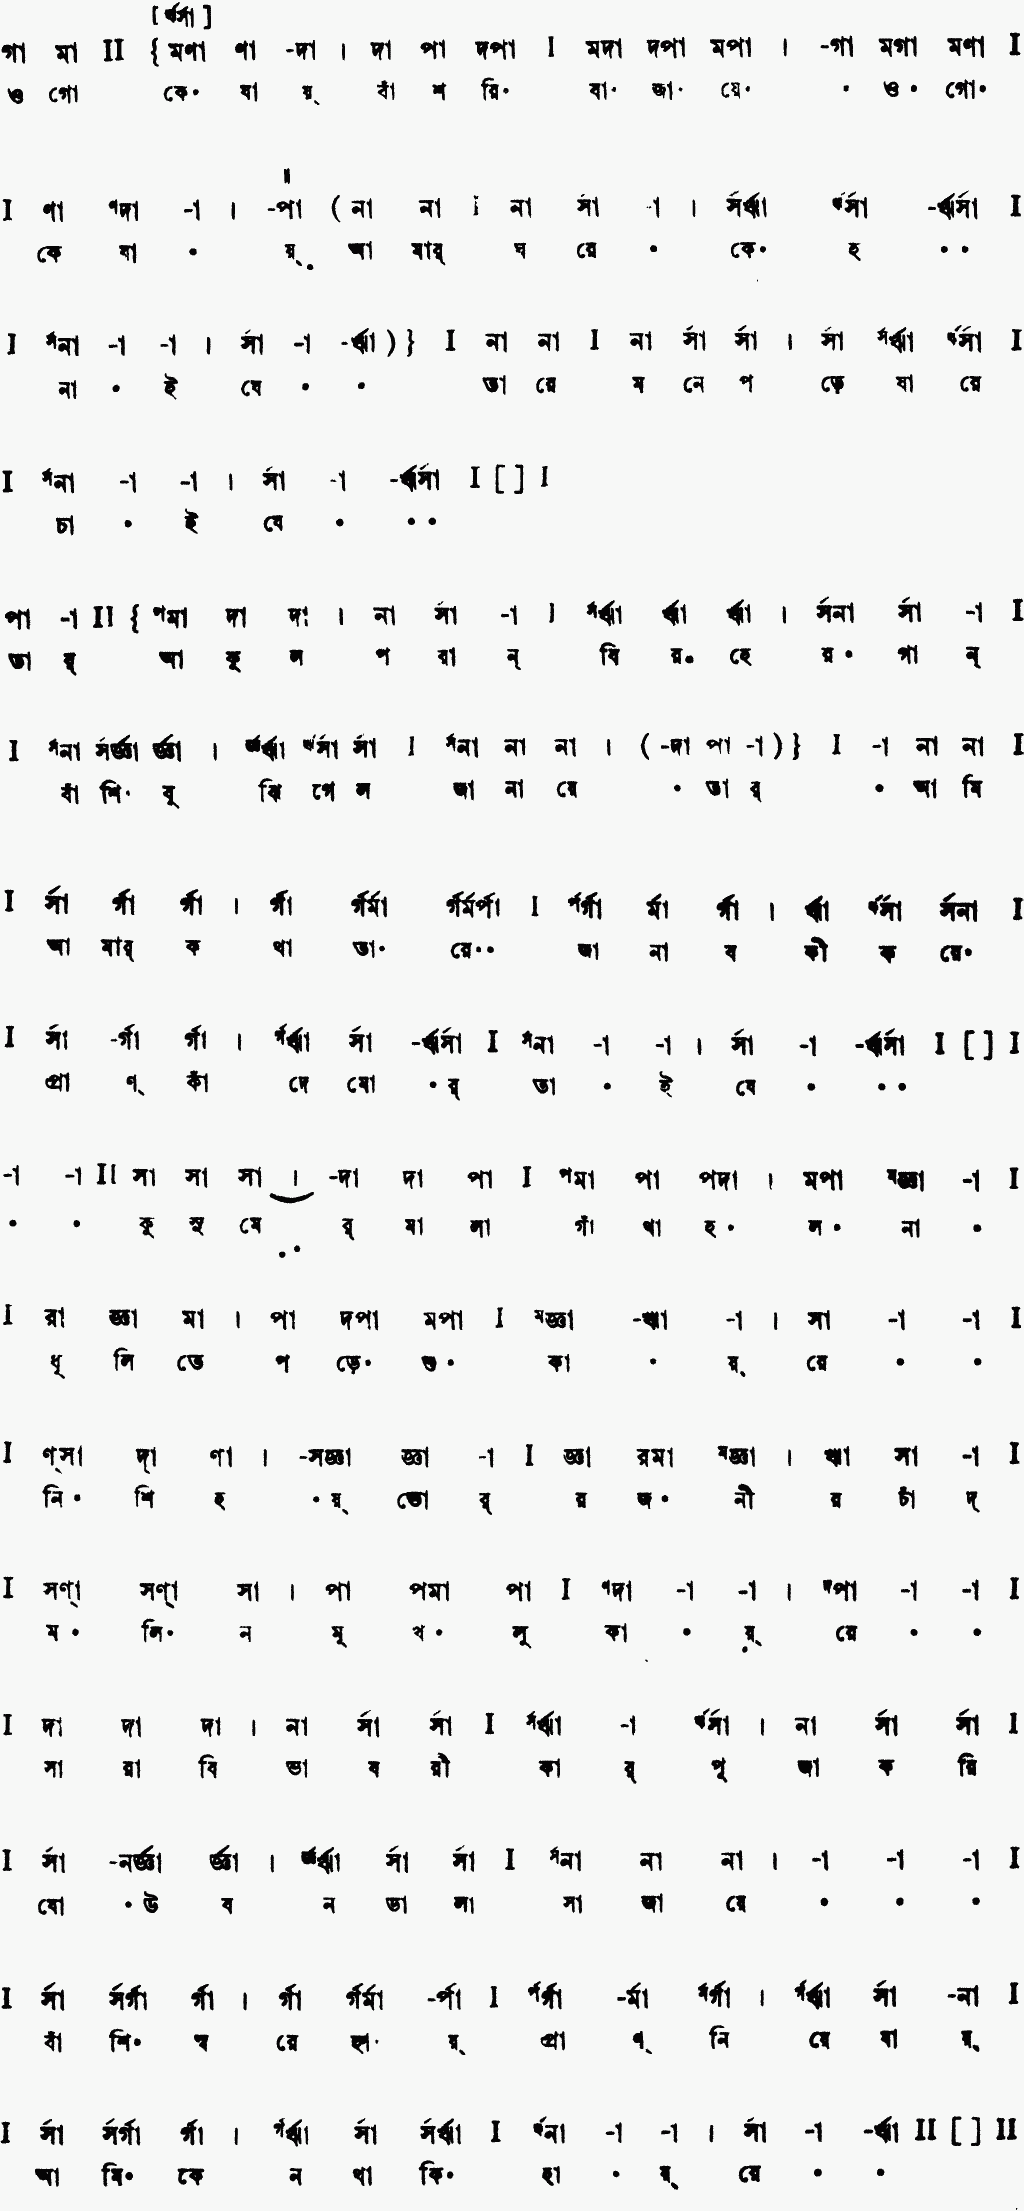 [ র্ঋর্সা ]
গা মা II { মণা ণা -দা । দা পা দপা I মদা দপা মপা । -গা মগা মণা I
ও গো কে॰ যা য়্ বাঁ শ রি॰ বা॰ জা॰ য়ে॰ ॰ ও ॰ গো॰
I ণা ণদা -া । -পা ( না না I না র্সা -া । র্সর্ঋা র্ঋর্সা -র্ঋর্সা I
কে যা ॰ য়্ ॰ আ মার্ ঘ রে ॰ কে॰ হ ॰ ॰
I র্সনা -া -া । র্সা -া -র্ঋা ) } I না না I না র্সা র্সা । র্সা র্সর্ঋা র্ঋর্সা I
না ॰ ই যে ॰ ॰ তা রে ম নে প ড়ে যা রে
I র্সনা -া -া । র্সা -া -র্ঋর্সা I [ ] I
চা ॰ ই যে ॰ ॰ ॰
পা -া II { পমা দা দা । না র্সা -া I র্সর্ঋা র্ঋা র্ঋা । র্সনা র্সা -া I
তা র্ আ কু ল প রা ন্ বি র॰ হে র ॰ গা ন্
I র্সনা র্সর্জ্ঞা র্জ্ঞা । র্জ্ঞর্ঋা র্ঋর্সা র্সা I র্সনা না না । ( -দা পা -া ) } I -া না না I
বাঁ শি॰ বু ঝি গে ল জা না য়ে ॰ তা র্ ॰ আ মি
I র্সা র্গা র্গা । র্গা র্গর্মা র্গর্মর্পা I র্পর্গা র্মা র্গা । র্ঋা র্ঋর্সা র্সনা I
আ মার্ ক থা তা॰ রে॰॰ জা না ব কী ক রে॰
I র্সা -র্গা র্গা । র্গর্ঋা র্সা -র্ঋর্সা I র্সনা -া -া । র্সা -া -র্ঋর্সা I [ ] I
প্রা ণ্ কাঁ দে মো ॰ র্ তা ॰ ই যে ॰ ॰ ॰
-া -া II সা সা সা । -দা দা পা I পমা পা পদা । মপা মজ্ঞা -া I
॰ ॰ কু সু মে ॰॰ র্ মা লা গাঁ থা হ ॰ ল ॰ না ॰
I রা জ্ঞা মা । পা দপা মপা I মজ্ঞা -ঋা -া । সা -া -া I
ধূ লি তে প ড়ে॰ শু ॰ কা ॰ য়্ রে ॰ ॰
I ণ্সা দ্া ণা । -সজ্ঞা জ্ঞা -া I জ্ঞা রমা মজ্ঞা । ঋা সা -া I
নি ॰ শি হ ॰ য়্ ভো র্ র জ ॰ নী র চাঁ দ্
I সণ্া সণ্া সা । পা পমা পা I ণদা -া -া । দপা -া -া I
ম ॰ লি॰ ন মু খ ॰ লু কা ॰ য়্ রে ॰ ॰
I দা দা দা । না র্সা র্সা I র্সর্ঋা -া র্ঋর্সা । না র্সা র্সা I
সা রা বি ভা ব রী কা র্ পূ জা ক রি
I র্সা -নর্জ্ঞা র্জ্ঞা । র্জ্ঞর্ঋা র্সা র্সা I র্সনা না না । -া -া -া I
যো ॰ উ ব ন ডা লা সা জা য়ে ॰ ॰ ॰
I র্সা র্সর্গা র্গা । র্গা র্গর্মা -র্পা I র্পর্গা -র্মা র্মর্গা । র্গর্ঋা র্সা -না I
বাঁ শি॰ স্ব রে হা॰ য়্ প্রা ণ্ নি য়ে যা য়্
I র্সা র্সর্গা র্গা । র্গর্ঋা র্সা র্সর্ঋা I র্ঋনা -া -া । র্সা -া -র্ঋা II [ ] II
আ মি॰ কে ন থা কি॰ হা ॰ য়্ রে ॰ ॰